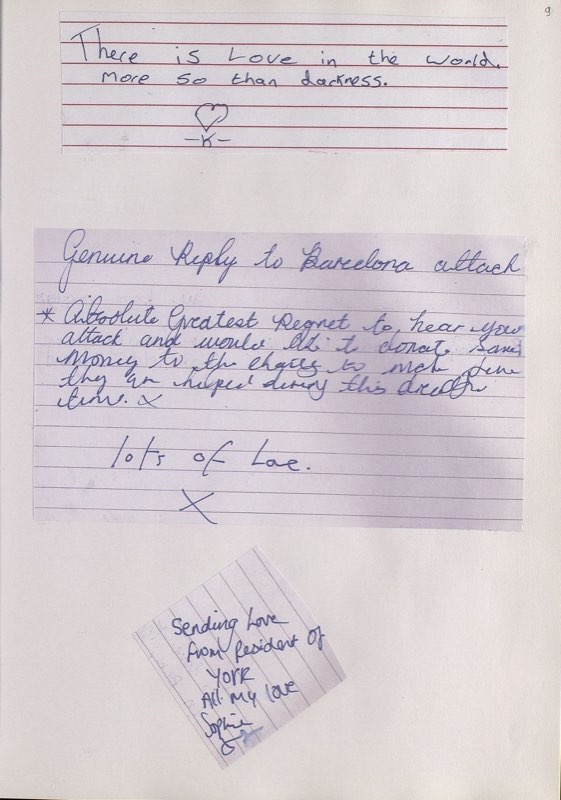 9
There is Love in the world.
More so than darkness.
-K-
Genuine Reply to Barcelona attack
* Absolute Greatest Regret to hear your
attack and would like to donate some
money to the charity to make sure
they are helped during this
time. x
lots of Love.
X
Sending Love
from resident of
YORK
All My love
Sophie
x